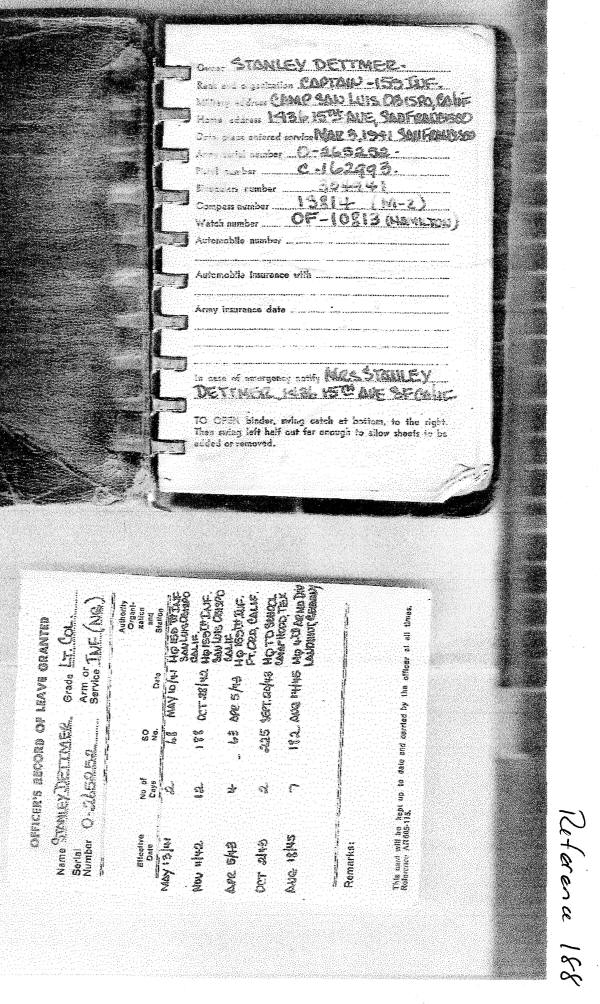 Owner STANLEY DETTMER.
Rank and organization CAPTAIN - 159 INF.
Military address CAMP SAN LUIS OBISPO, CALIF
Home address 1436 15TH AVE, SAN FRANCISCO
Date, place entered service MAR 3, 1941 SAN FRANCISCO
Army serial number O-265252.
number C-162993.
Binoculars number
Compass number 13814 (M-2)
Watch number OF-10813 (HAMILTON)
Automobile number
Automobile Insurance with
Army insurance date
In case of emergency notify MRS STANLEY
DETTMER, 1436 15TH AVE SF CALIF.
TO OPEN binder, swing catch at bottom, to the right.
Then swing left half out far enough to allow sheets to be
added or removed.
OFFICER'S RECORD OF LEAVE GRANTED
Name STANLEY DETTMER Grade LT. COL.
Serial Number O-265252 Arm or Service INF. (NG.)
Effective Date No of Days SO No. Date Authority Organization and Station
MAY 13/41 2 68 MAY 10/41 HQ 159TH INF. SAN LUIS OBISPO CALIF.
NOV 4/42 12 188 OCT 28/42 HQ 159TH INF. SAN LUIS OBISPO CALIF.
APR 5/43 4 63 APR 5/43 HQ 159TH INF. FT. ORD, CALIF.
OCT 2/43 2 225 SEPT. 20/43 HQ TD SCHOOL CAMP HOOD, TEX
AUG 18/45 7 182 AUG 14/45 HQ 4TH ARMD DIV GERMANY
Remarks:
This card will be kept up to date and carried by the officer at all times.
Reference AR 605-115.
Reference 188